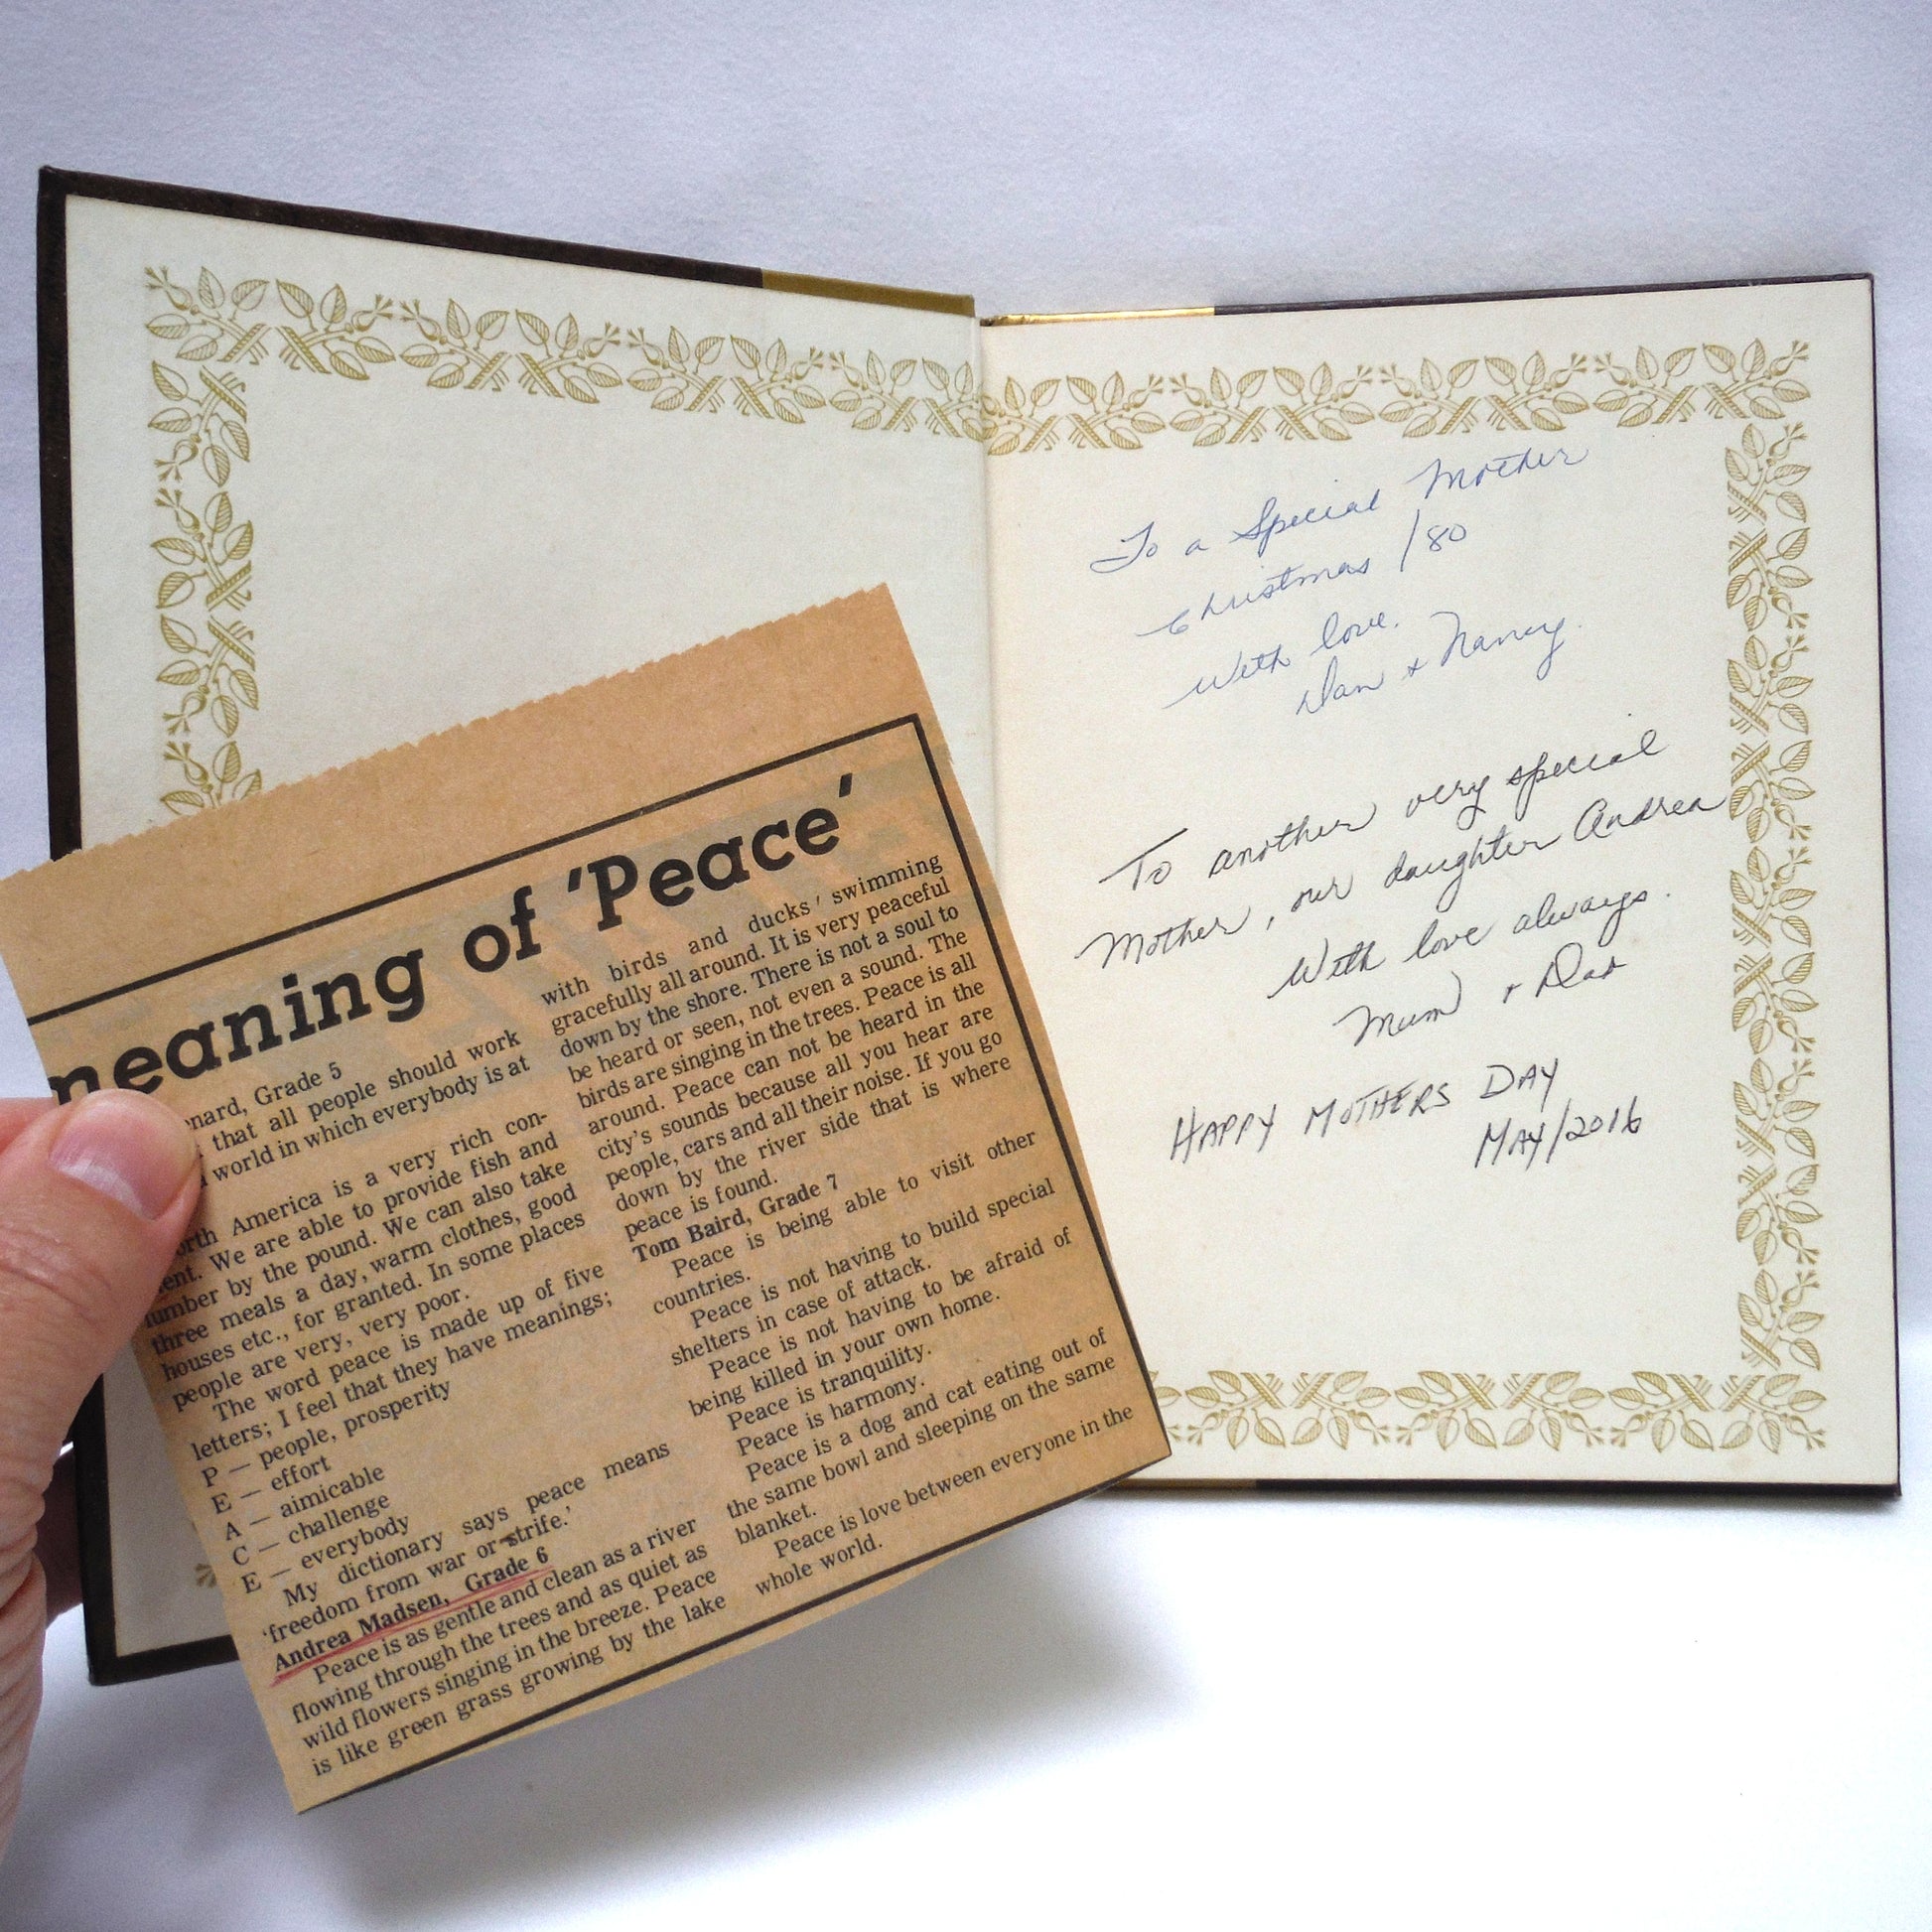 meaning of 'Peace'
nard, Grade 5
that all people should work
world in which everybody is at
orth America is a very rich con-
ent. We are able to provide fish and
lumber by the pound. We can also take
three meals a day, warm clothes, good
houses etc., for granted. In some places
people are very, very poor.
The word peace is made up of five
letters; I feel that they have meanings;
P — people, prosperity
E — effort
A — aimicable
C — challenge
E — everybody
My dictionary says peace means
'freedom from war or strife.'
Andrea Madsen, Grade 6
Peace is as gentle and clean as a river
flowing through the trees and as quiet as
wild flowers singing in the breeze. Peace
is like green grass growing by the lake
with birds and ducks swimming
gracefully all around. It is very peaceful
down by the shore. There is not a soul to
be heard or seen, not even a sound. The
birds are singing in the trees. Peace is all
around. Peace can not be heard in the
city's sounds because all you hear are
people, cars and all their noise. If you go
down by the river side that is where
peace is found.
Tom Baird, Grade 7
Peace is being able to visit other
countries.
Peace is not having to build special
shelters in case of attack.
Peace is not having to be afraid of
being killed in your own home.
Peace is tranquility.
Peace is harmony.
Peace is a dog and cat eating out of
the same bowl and sleeping on the same
blanket.
Peace is love between everyone in the
whole world.
To a Special Mother
Christmas /80
With love.
Dan + Nancy.
To another very special
Mother, our daughter Andrea
With love always.
Mum + Dad
HAPPY MOTHERS DAY
MAY/2016